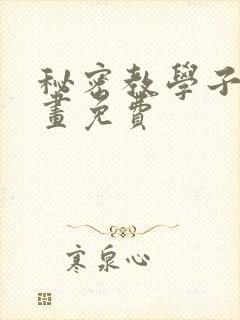 秘密教學子
畫免費
寒泉心